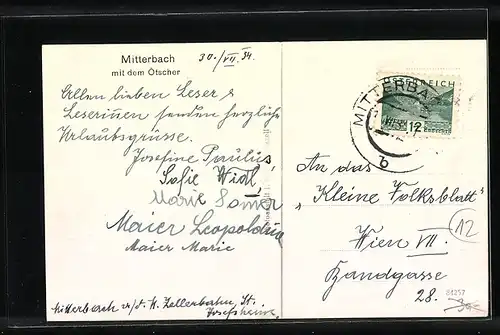 Mitterbach
mit dem Ötscher
30./VII. 34.
Allen lieben Leser &
Leserinnen senden herzliche
Urlaubsgrüsse.
Josefine Paulus,
Sofie
Marie
Maier Leopoldine
Maier Marie
Mitterbach a/d. M. Zellerbahn, St.
Josefsheim.
ÖSTERREICH
12
MITTERBACH
b
An das
„Kleine Volksblatt"
Wien VII.
Bandgasse
28.
12
81257